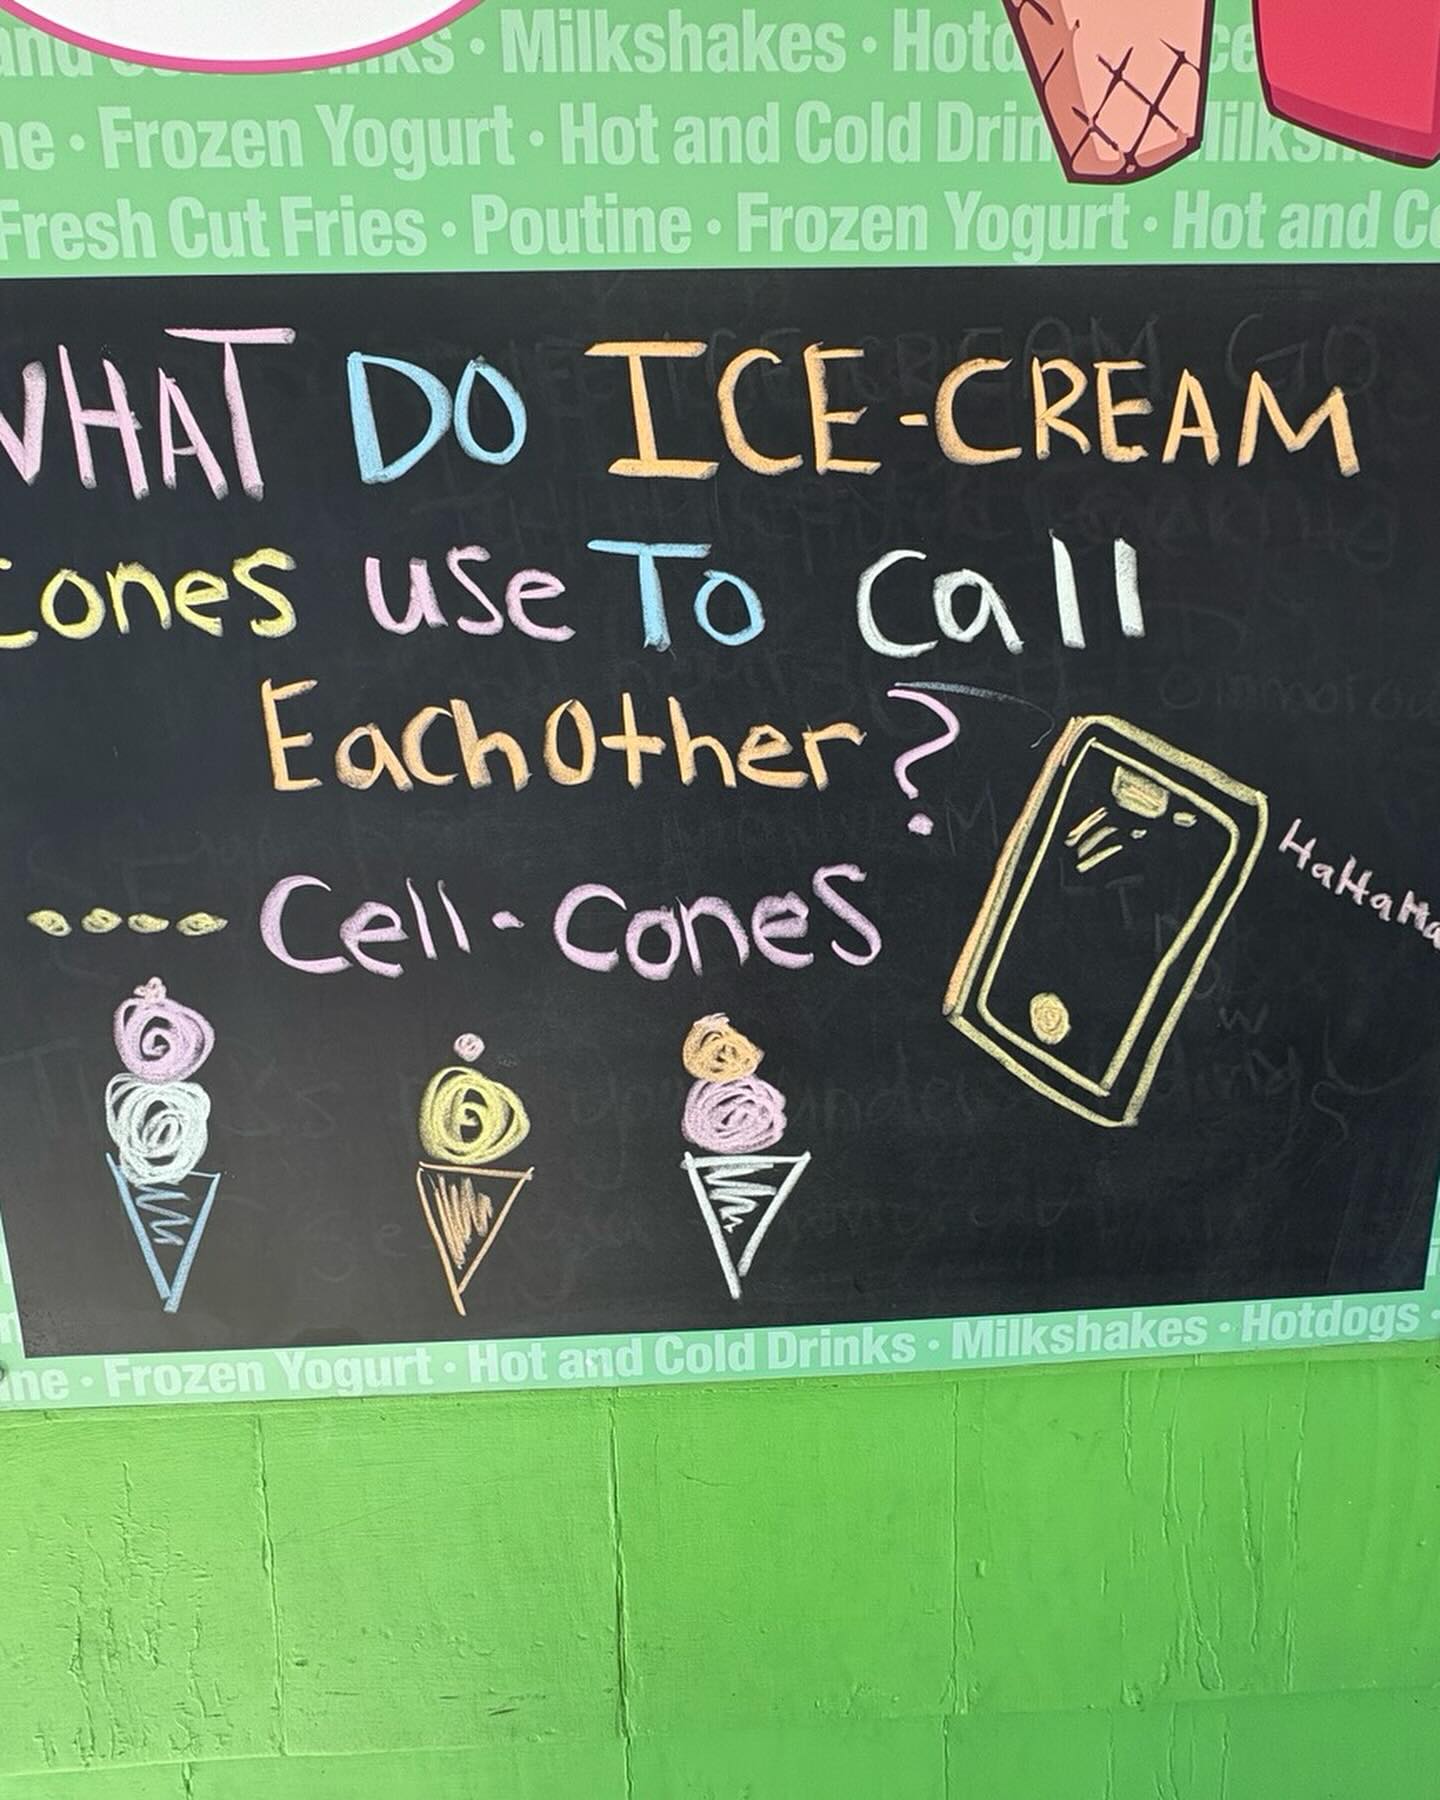 Milkshakes ·
· Frozen Yogurt · Hot and Cold
Fresh Cut Fries · Poutine · Frozen Yogurt · Hot and
WHAT DO ICE-CREAM
cones use To call
EachOther?
Cell-Cones
HaHaHa
· Frozen Yogurt · Hot and Cold Drinks · Milkshakes · Hotdogs ·